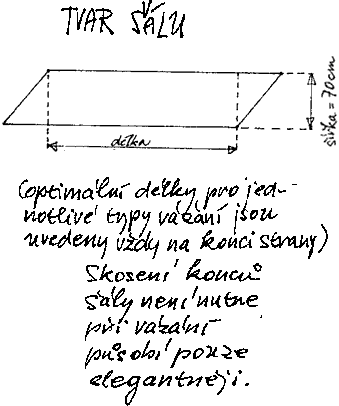 TVAR ŠÁLU
šířka = 70cm
délka
(optimální délky pro jed-
notlivé typy vázání jsou
uvedeny vždy na konci strany)
Skosení konců
šály není nutné
při vázání
působí pouze
elegantněji.